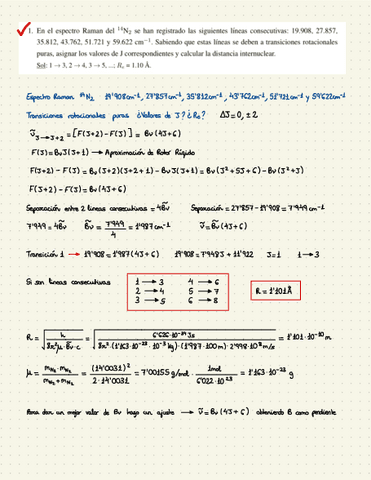 1. En el espectro Raman del ¹⁴N₂ se han registrado las siguientes líneas consecutivas: 19.908, 27.857,
35.812, 43.762, 51.721 y 59.622 cm⁻¹. Sabiendo que estas líneas se deben a transiciones rotacionales
puras, asignar los valores de J correspondientes y calcular la distancia internuclear.
Sol: 1 → 3, 2 → 4, 3 → 5, ...; Rₑ = 1.10 Å.
Espectro Raman ¹⁴N₂ 19'908cm⁻¹, 27'857cm⁻¹, 35'812cm⁻¹, 43'762cm⁻¹, 51'721cm⁻¹ y 59'622cm⁻¹
Transiciones rotacionales puras ¿Valores de J? ¿R₀? ΔJ=0, ±2
ν̃ J→J+2 = [F(J+2) - F(J)] = Bν(4J+6)
F(J) = BνJ(J+1) → Aproximación de Rotor Rígido
F(J+2) - F(J) = Bν(J+2)(J+2+1) - BνJ(J+1) = Bν(J²+5J+6) - Bν(J²+J)
F(J+2) - F(J) = Bν(4J+6)
Separación entre 2 líneas consecutivas = 4B̃ν Separación = 27'857 - 19'908 = 7'949 cm⁻¹
7'949 = 4B̃ν B̃ν = 7'949/4 = 1'987 cm⁻¹ ν̃ = B̃ν(4J+6)
Transición 1 → 19'908 = 1'987(4J+6) 19'908 = 7'948J + 11'922 J=1 1 → 3
Si son líneas consecutivas
1 → 3 4 → 6
2 → 4 5 → 7
3 → 5 6 → 8
R = 1'101Å
R = √(h / 8π²μ·B̃ν·c) = √(6'626·10⁻³⁴ Js / 8π²·(1'163·10⁻²³·10⁻³ kg)·(1'987·100m)·2'998·10⁸ m/s) = 1'101·10⁻¹⁰ m
μ = m_N₂·m_N₂ / m_N₂+m_N₂ = (14'0031)² / 2·14'0031 = 7'00155 g/mol · 1mol / 6'022·10²³ = 1'163·10⁻²³ g
Para dar un mejor valor de Bν hago un ajuste → ν̃ = Bν(4J+6) obteniendo B como pendiente